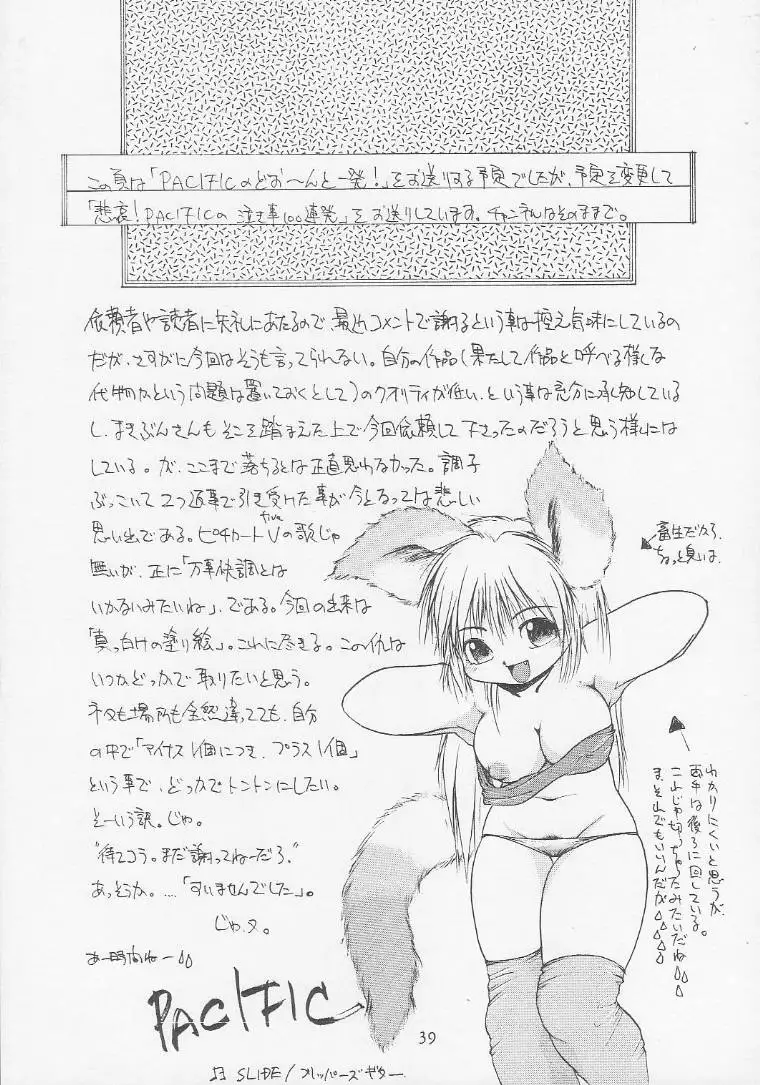 この頁は「PACIFICのどお〜んと一発！」をお送りする予定でしたが、予定を変更して
「悲哀！PACIFICの泣き事100連発」をお送りしています。チャンネルはそのままで。
依頼者や読者に失礼にあたるので、最近コメントで謝るという事は控え気味にしているの
だが、さすがに今回はそうも言ってられない。自分の作品(果たして作品と呼べる様な
代物かという問題は置いておくとして)のクオリティが低い、という事は充分に承知している
し、まきぶんさんもそこを踏まえた上で今回依頼して下さったのだろうと思う様には
している。が、ここまで落ちるとは正直思わなかった。調子
ぶっこいて2つ返事で引き受けた事が今となっては悲しい
思い出である。ピチカートVの歌じゃ
five
無いが、正に「万事快調とは
いかないみたいね」、である。今回の出来は
「真っ白けの塗り絵」。これに尽きる。この仇は
いつかどっかで取りたいと思う。
ネタも場所も全然違ってても、自分
の中で「マイナス1個につき、プラス1個」
という事で、どっかでトントンにしたい。
そーいう訳。じゃ。
"待てコラ。まだ謝ってねーだろ"
あっそうか。…「すいませんでした」。
じゃ、
PACIFIC
畜生だから、
ちょっと臭いは、
わかりにくいと思うが、
両手は後ろに回している。
これじゃ切っちゃったみたいだね
ま、それでもいいんだが
39
SLIDE/フリッパーズギター